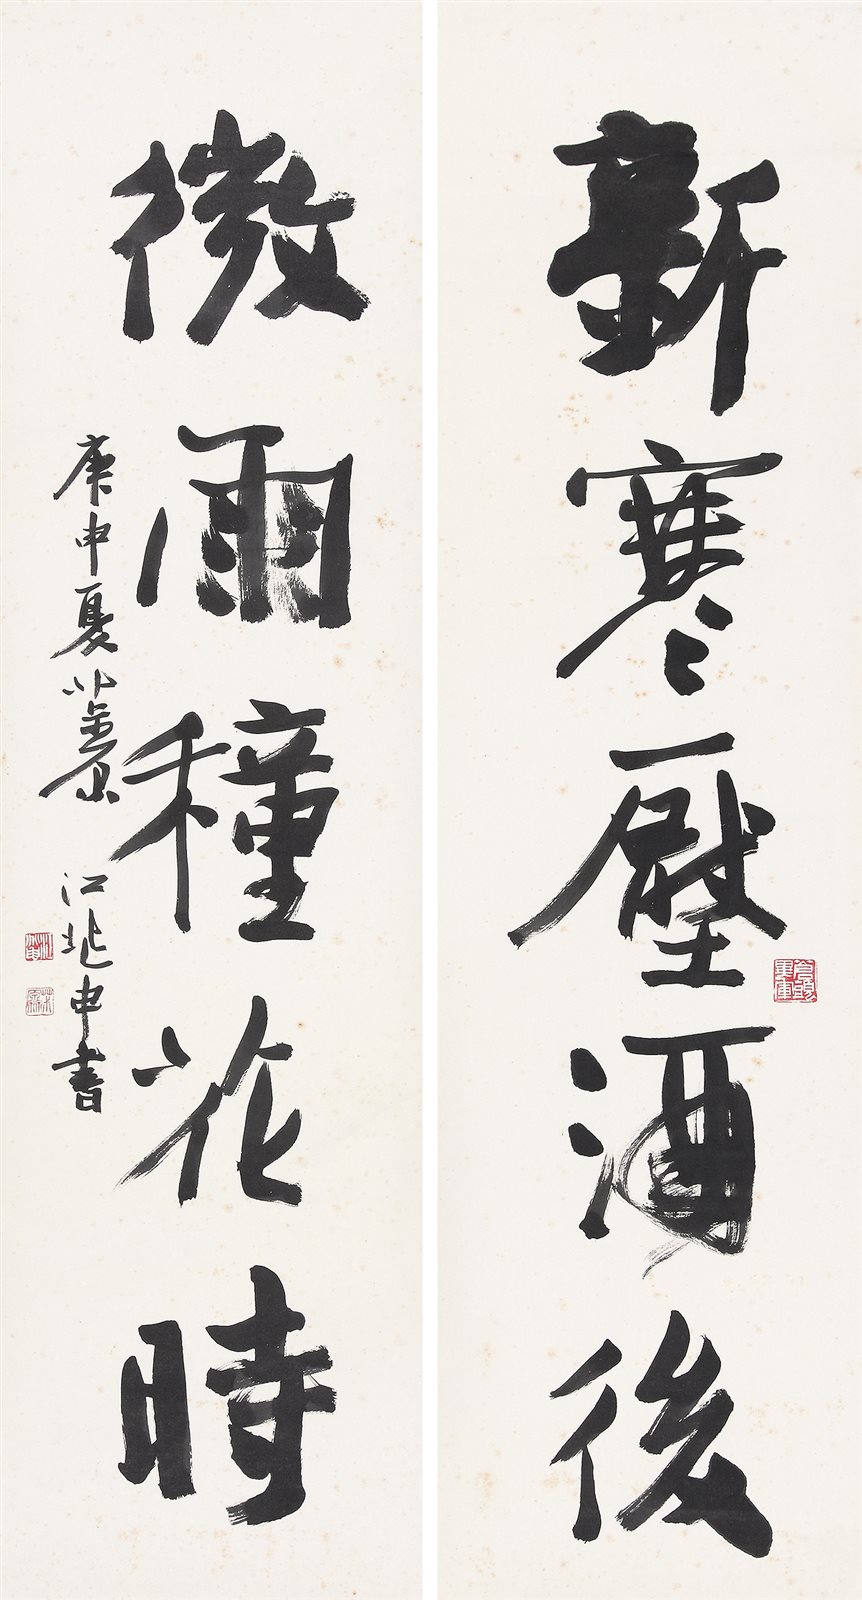 新寒壓酒後
微雨種花時
庚申夏 江兆申書